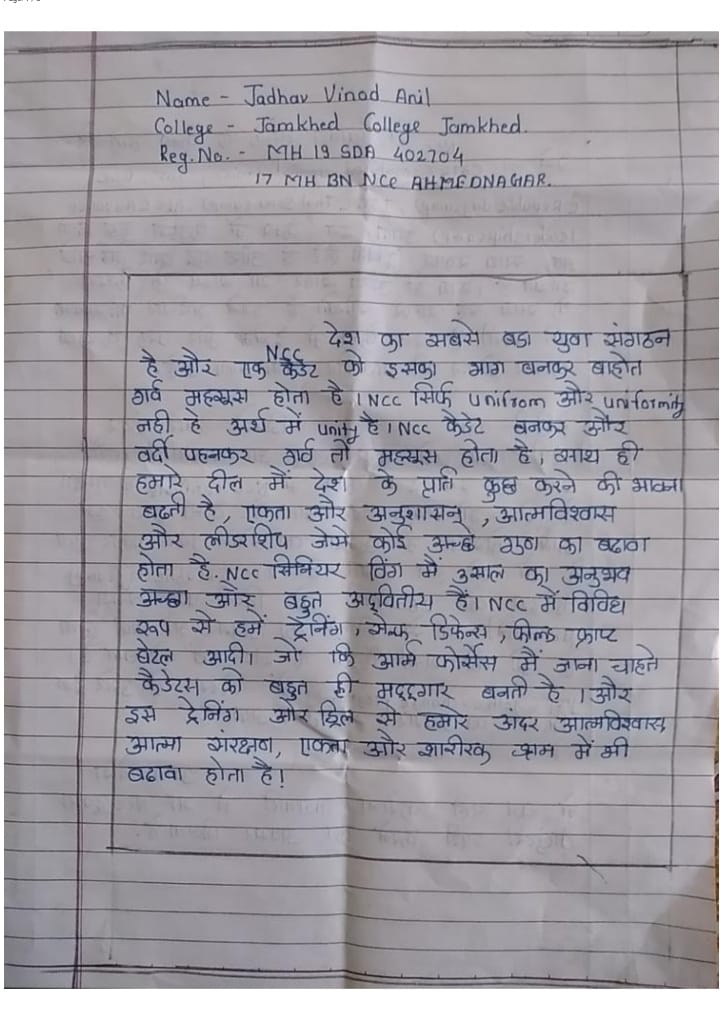 Name - Jadhav Vinod Anil
College - Jamkhed College Jamkhed.
Reg. No. - MH 19 SDA 402704
17 MH BN NCC AHMEDNAGAR.
देश का सबसे बडा युवा संगठन
है और एक NCC कैडेट को इसका भाग बनकर बाहोत
गर्व महसूस होता है । NCC सिर्फ unifrom और uniformity
नही हे अर्थ में unity है । NCC कैडेट बनकर और
वर्दी पहनकर गर्व तो महसूस होता है, साथ ही
हमारे दील मैं देश के प्रति कुछ करने की भावना
बढती है, एकता और अनुशासन, आत्मविश्वास
और लीडरशिप जेसे कोई अच्छे गुण का बढावा
होता है. NCC सिनियर विंग मैं 3साल का अनुभव
अच्छा और बहुत अद्वितीय हैं। NCC में विविध
रूप से हमें ट्रेनिंग, सेल्फ डिफेन्स, फील्ड क्राप्ट
बेटल आदी। जो कि आर्म फोर्सेस मैं जाना चाहते
कैडेट्स को बहुत ही मददगार बनती है । और
इस ट्रेनिंग और ड्रिल से हमारे अंदर आत्मविश्वास,
आत्मा संरक्षण, एकता और शारीरक श्रम में भी
बढावा होता है!